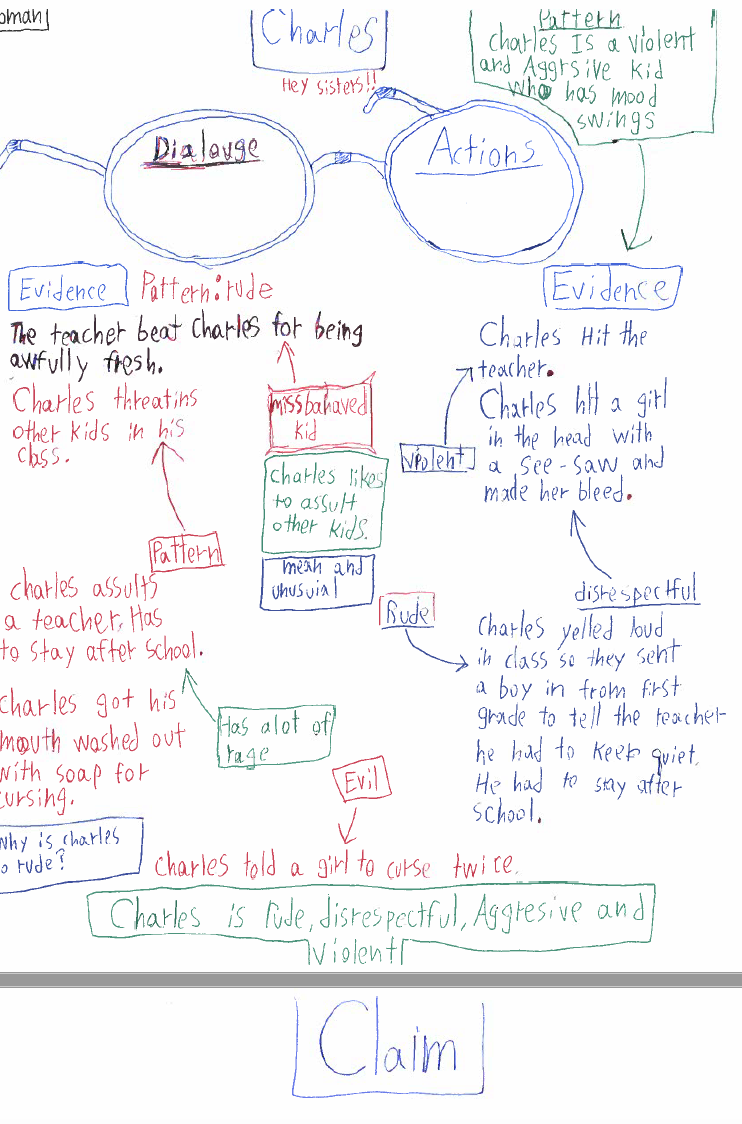 oman
Charles
Hey sisters!!
Pattern
charles Is a violent
and Aggrsive kid
who has mood
swings
Dialauge
Actions
Evidence
Pattern: rude
The teacher beat Charles for being
awfully fresh.
Charles threatins
other kids in his
class.
missbahaved
kid
Charles likes
to assult
other kids.
mean and
unusuial
Pattern
charles assults
a teacher. Has
to stay after school.
Charles got his
mouth washed out
with soap for
cursing.
Has alot of
rage
Why is charles
so rude?
Evidence
Charles Hit the
teacher.
Charles hit a girl
in the head with
a see-saw and
made her bleed.
violent
disrespectful
Rude
Charles yelled loud
in class so they sent
a boy in from first
grade to tell the teacher
he had to keep quiet.
He had to stay after
school.
Evil
Charles told a girl to curse twice.
Charles is rude, disrespectful, Aggresive and
Violent
Claim